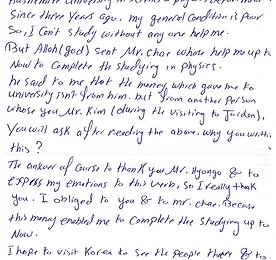 University in Physics Department
Since three years ago. my general Condition is Poor
So, I Can't study without any one help me.
But Allah (god) sent Mr. Chae whose help me up to
Now to Complete the studying in physics.
he said to me that the money which gave me to
university isn't from him. but from another Person
whose you Mr. Kim (during the visiting to Jordan),
You will ask after reading the above. Why you
this?
The answer of Course to thank you Mr. Hyongo & to
express my emotions to this work, so I really thank
you. I obliged to you & to mr. chae. Because
this money enabled me to Complete the studying up to
Now.
I hope to visit Korea to see the people there & to